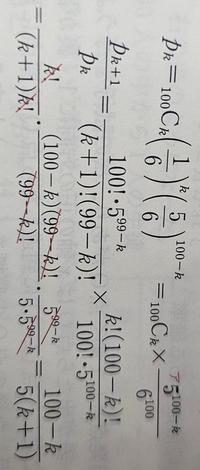 p_k = ₁₀₀C_k (1/6)^k (5/6)^{100−k} = ₁₀₀C_k × 5^{100−k}/6^{100}
p_{k+1}/p_k = 100!·5^{99−k}/((k+1)!(99−k)!) × k!(100−k)!/(100!·5^{100−k})
= k!/((k+1)k!) · (100−k)(99−k)!/(99−k)! · 5^{99−k}/(5·5^{99−k}) = (100−k)/(5(k+1))